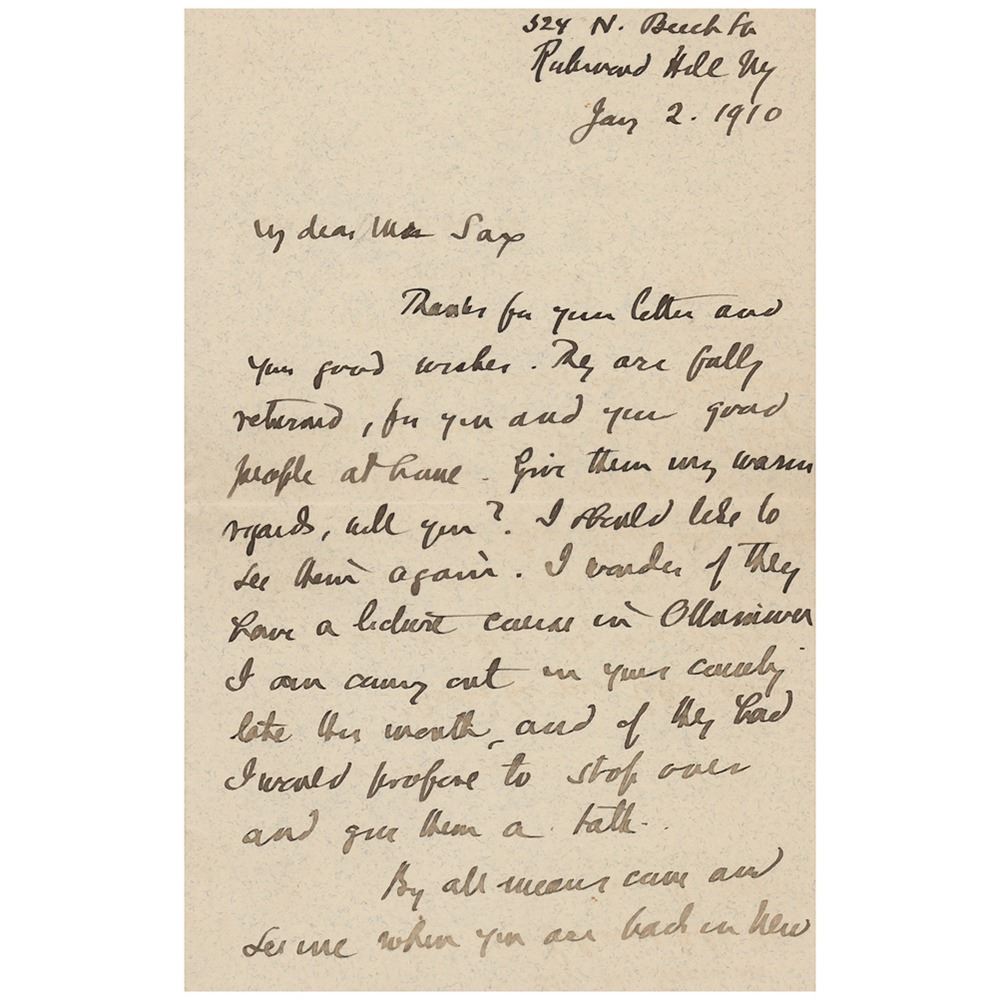 524 N. Beech St
Richmond Hill Ny
Jany 2. 1910
My dear Miss Sax
Thanks for your letter and
your good wishes. They are fully
returned, for you and your good
people at home. Give them my warm
regards, will you? I should like to
see them again. I wonder if they
have a lecture course in Ottumwa
I am coming out in your country
late this month, and if they had
I would propose to stop over
and give them a talk.
By all means come and
see me when you are back in New